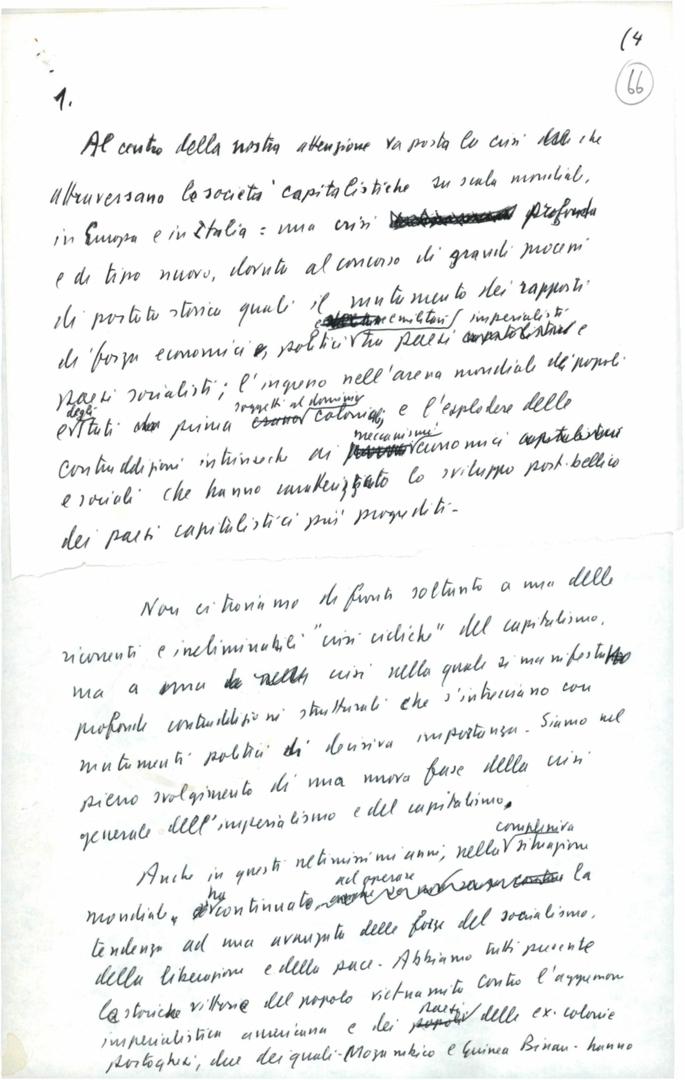 (4
66
1.
Al centro della nostra attenzione va posta la crisi che
attraversano le società capitalistiche su scala mondiale,
in Europa e in Italia: una crisi profonda
e di tipo nuovo, dovuta al concorso di grandi processi
di portata storica quali il mutamento dei rapporti
e militari imperialisti
di forza economici, politici tra paesi e
paesi socialisti; l'ingresso nell'arena mondiale dei popoli
degli soggetti al dominio
e Stati prima coloniale, e l'esplodere delle
meccanismi
contraddizioni intrinseche di economici
e sociali che hanno caratterizzato lo sviluppo post-bellico
dei paesi capitalistici più progrediti.
Non ci troviamo di fronte soltanto a una delle
ricorrenti e ineliminabili "crisi cicliche" del capitalismo,
ma a una crisi nella quale si manifestano
profonde contraddizioni strutturali che s'intrecciano con
mutamenti politici di decisiva importanza. Siamo nel
pieno svolgimento di una nuova fase della crisi
generale dell'imperialismo e del capitalismo.
complessiva
Anche in questi ultimissimi anni, nella situazione
ha ad operare
mondiale, continuato la
tendenza ad una avanzata delle forze del socialismo,
della liberazione e della pace. Abbiamo tutti presente
la storica vittoria del popolo vietnamita contro l'aggressione
paesi
imperialistica americana e dei delle ex-colonie
portoghesi, due dei quali - Mozambico e Guinea Bissau - hanno